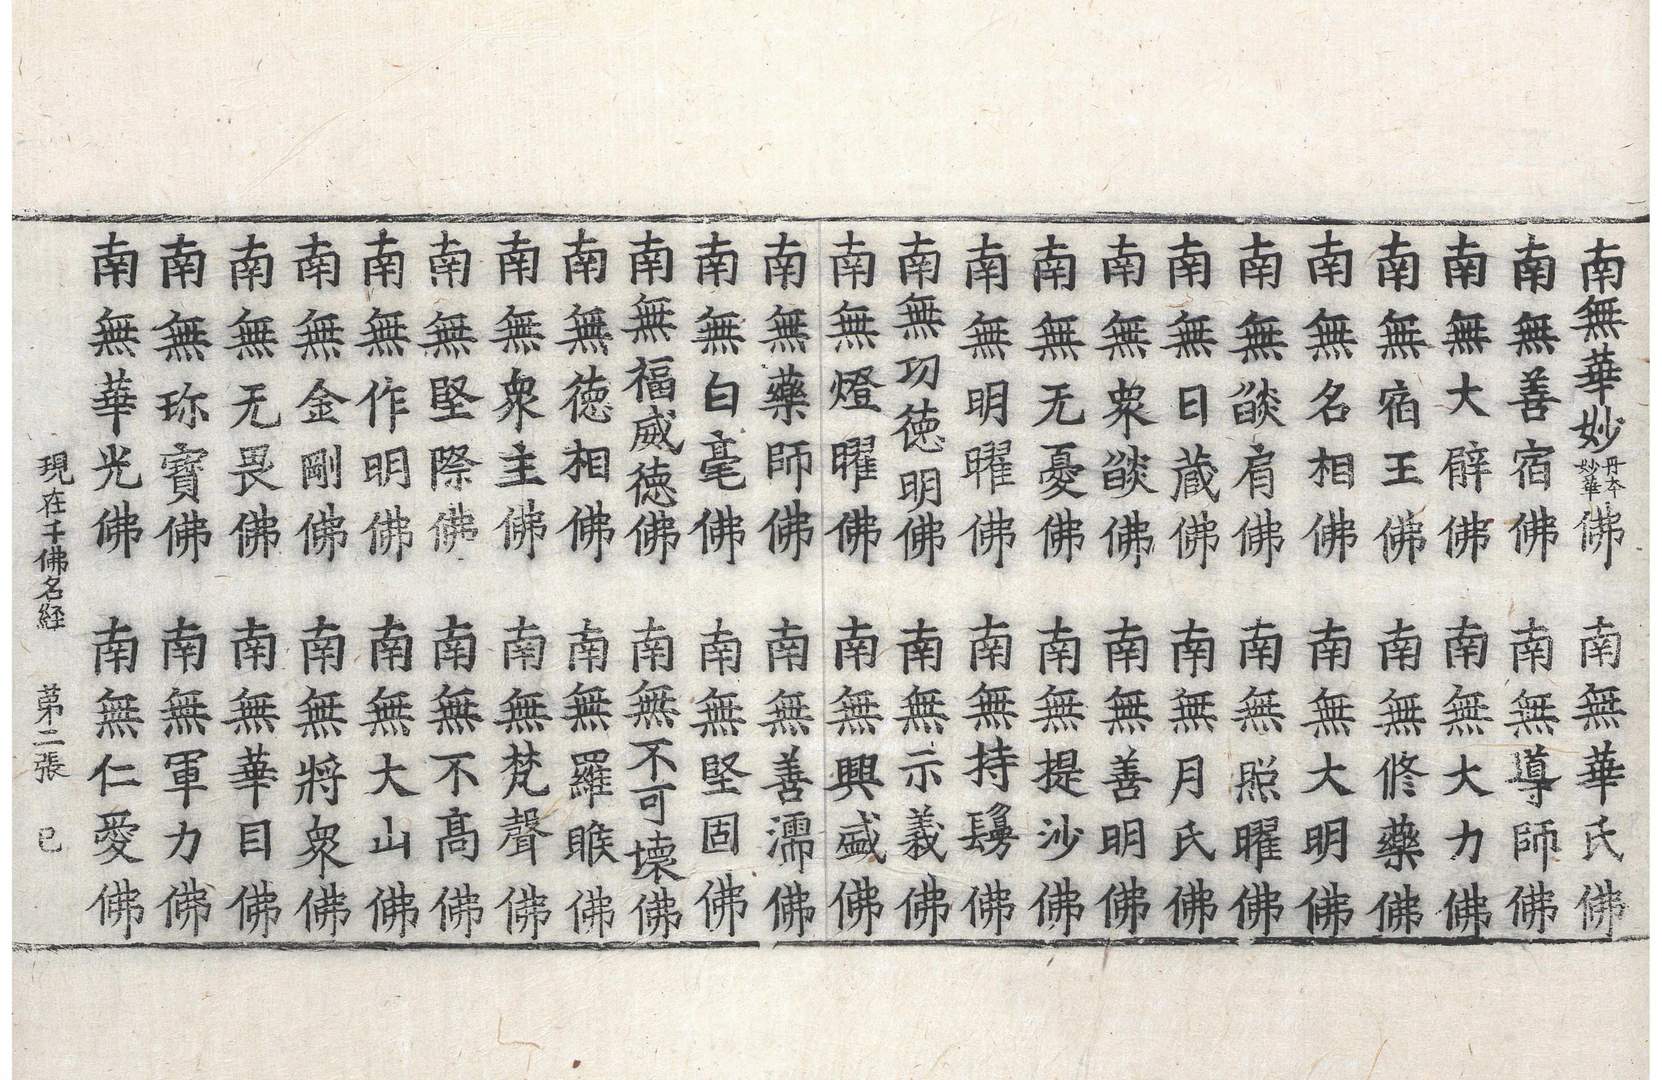 南無華妙丹本妙華佛　南無華氏佛
南無善宿佛　南無導師佛
南無大臂佛　南無大力佛
南無宿王佛　南無修藥佛
南無名相佛　南無大明佛
南無燄肩佛　南無照曜佛
南無日蔵佛　南無月氏佛
南無衆燄佛　南無善明佛
南無无憂佛　南無提沙佛
南無明曜佛　南無持鬘佛
南無功徳明佛　南無示義佛
南無燈曜佛　南無興盛佛
南無藥師佛　南無善濡佛
南無白毫佛　南無堅固佛
南無福威徳佛　南無不可壞佛
南無徳相佛　南無羅睺佛
南無衆主佛　南無梵聲佛
南無堅際佛　南無不髙佛
南無作明佛　南無大山佛
南無金剛佛　南無將衆佛
南無无畏佛　南無華目佛
南無珎寳佛　南無軍力佛
南無華光佛　南無仁愛佛
現在千佛名経　第二張　已